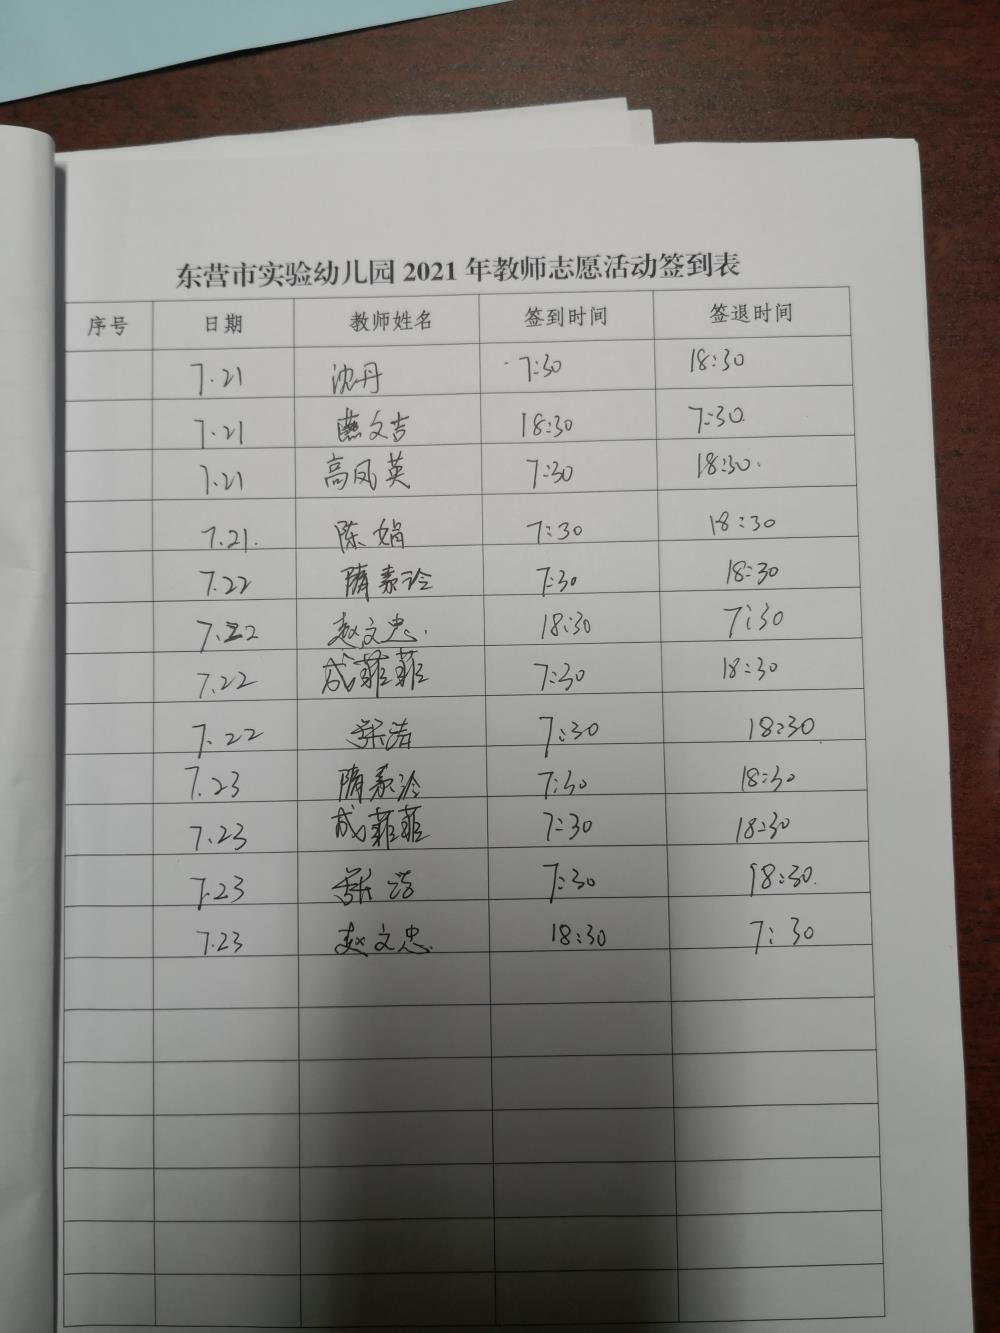 东营市实验幼儿园2021年教师志愿活动签到表
序号 日期 教师姓名 签到时间 签退时间
7.21 沈丹 7:30 18:30
7.21 燕文吉 18:30 7:30
7.21 高凤英 7:30 18:30
7.21. 陈娟 7:30 18:30
7.22 隋素玲 7:30 18:30
7.22 赵文忠 18:30 7:30
7.22 成菲菲 7:30 18:30
7.22 7:30 18:30
7.23 隋素玲 7:30 18:30
7.23 成菲菲 7:30 18:30
7.23 7:30 18:30
7.23 赵文忠 18:30 7:30